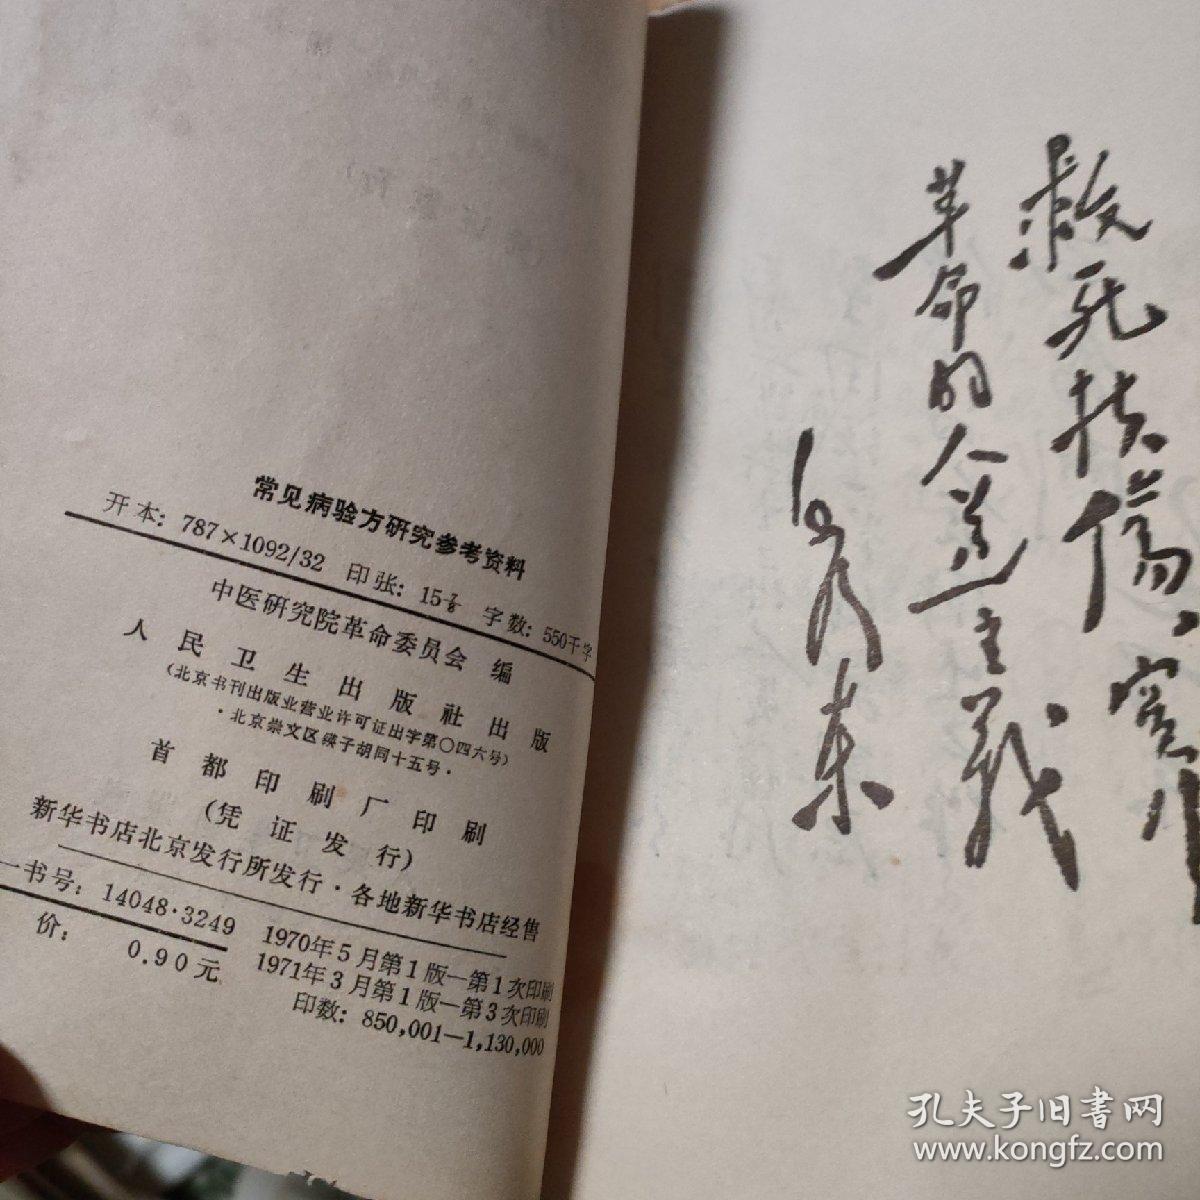 常见病验方研究参考资料
开本：787×1092/32 印张：15⅞ 字数：550千字
中医研究院革命委员会 编
人民卫生出版社出版
（北京书刊出版业营业许可证出字第〇四六号）
·北京崇文区䃼子胡同十五号·
首都印刷厂印刷
（凭证发行）
新华书店北京发行所发行·各地新华书店经售
一书号：14048·3249
价： 0.90元
1970年5月第1版—第1次印刷
1971年3月第1版—第3次印刷
印数：850,001—1,130,000
救死扶伤，实行
革命的人道主义
毛泽东
孔夫子旧书网
www.kongfz.com